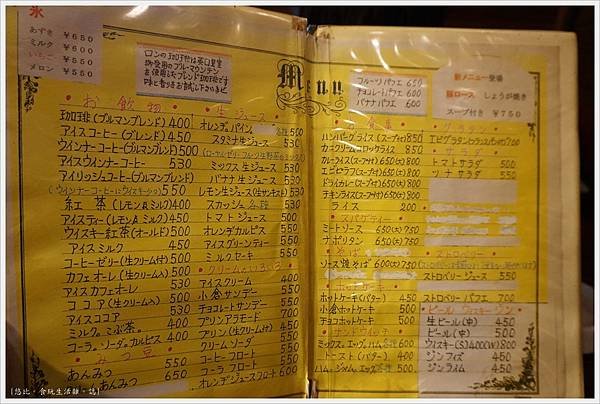 氷
あずき ¥650
ミルク ¥600
いちご
メロン ¥550
ロンの
ブルーマウンテン
Menu
・お飲物・
珈琲(ブルマンブレンド) 400
アイスコーヒー(ブレンド) 450
ウインナーコーヒー(ブルマンブレンド) 500
アイスウインナーコーヒー 530
アイリッシュコーヒー(ブルマンブレンド) 550
紅茶(レモン&ミルク) 400
アイスティー(レモン&ミルク) 450
ウイスキー紅茶(オールド) 500
アイスミルク 450
コーヒーゼリー(生クリーム付) 500
カフェオーレ(生クリーム入) 500
アイスカフェオーレ 530
ココア(生クリーム入) 500
アイスココア
ミルク。こぶ茶。 400
コーラ。ソーダ。カルピス 400
・みつ豆・
みつ豆 550
あんみつ 650
・生ジュース・
オレンヂ。パイン。
スタミナ生ジュース 530
ミックス生ジュース 530
バナナ生ジュース 530
レモン生ジュース(生サンキスト) 530
スカッシュ各種 530
トマトジュース 500
オレンヂカルピス 500
アイスグリーンティー 500
ミルクセーキ 550
・クリームのいろいろ・
アイスクリーム 400
小倉サンデー 550
チョコレートサンデー 550
プリンアラモード 700
プリン(生クリーム付)
クリームソーダ 550
コーヒーフロート 550
コーラフロート 550
オレンヂジュースフロート 600
フルーツパフェ 650
チョコレートパフェ 600
バナナパフェ 600
新メニュー登場
豚ロース しょうが焼き
スープ付き ¥750
ハンバーグライス(スープ付) 850
カニクリームコロッケライス 850
カレーライス(スープ付) 650(大)800
エビピラフ(スープ付) 650(大)800
ドライカレー(スープ付) 650(大)800
チキンライス(スープ付) 650(大)800
ライス 200
・スパゲティー・
ミートソース 650(大)750
ナポリタン 650(大)750
・そば・
ソース焼そば 600(大)750
・ホットケーキ・
ホットケーキ(バター) 450
小倉ホットケーキ 500
チョコホットケーキ 500
・サンドウィッチ・
トースト(バター) 400
・グラタン・
トマトサラダ 500
ツナサラダ 550
・ストロベリー・
ストロベリージュース 550
ストロベリーパフェ 700
・ビール ウヰスキー ジン・
生ビール(中) 450
ビール(中) 500
ウイスキー(S)400(W)800
ジンフィズ 450
ジンライム 450
[悠比・食玩生活雜・誌]